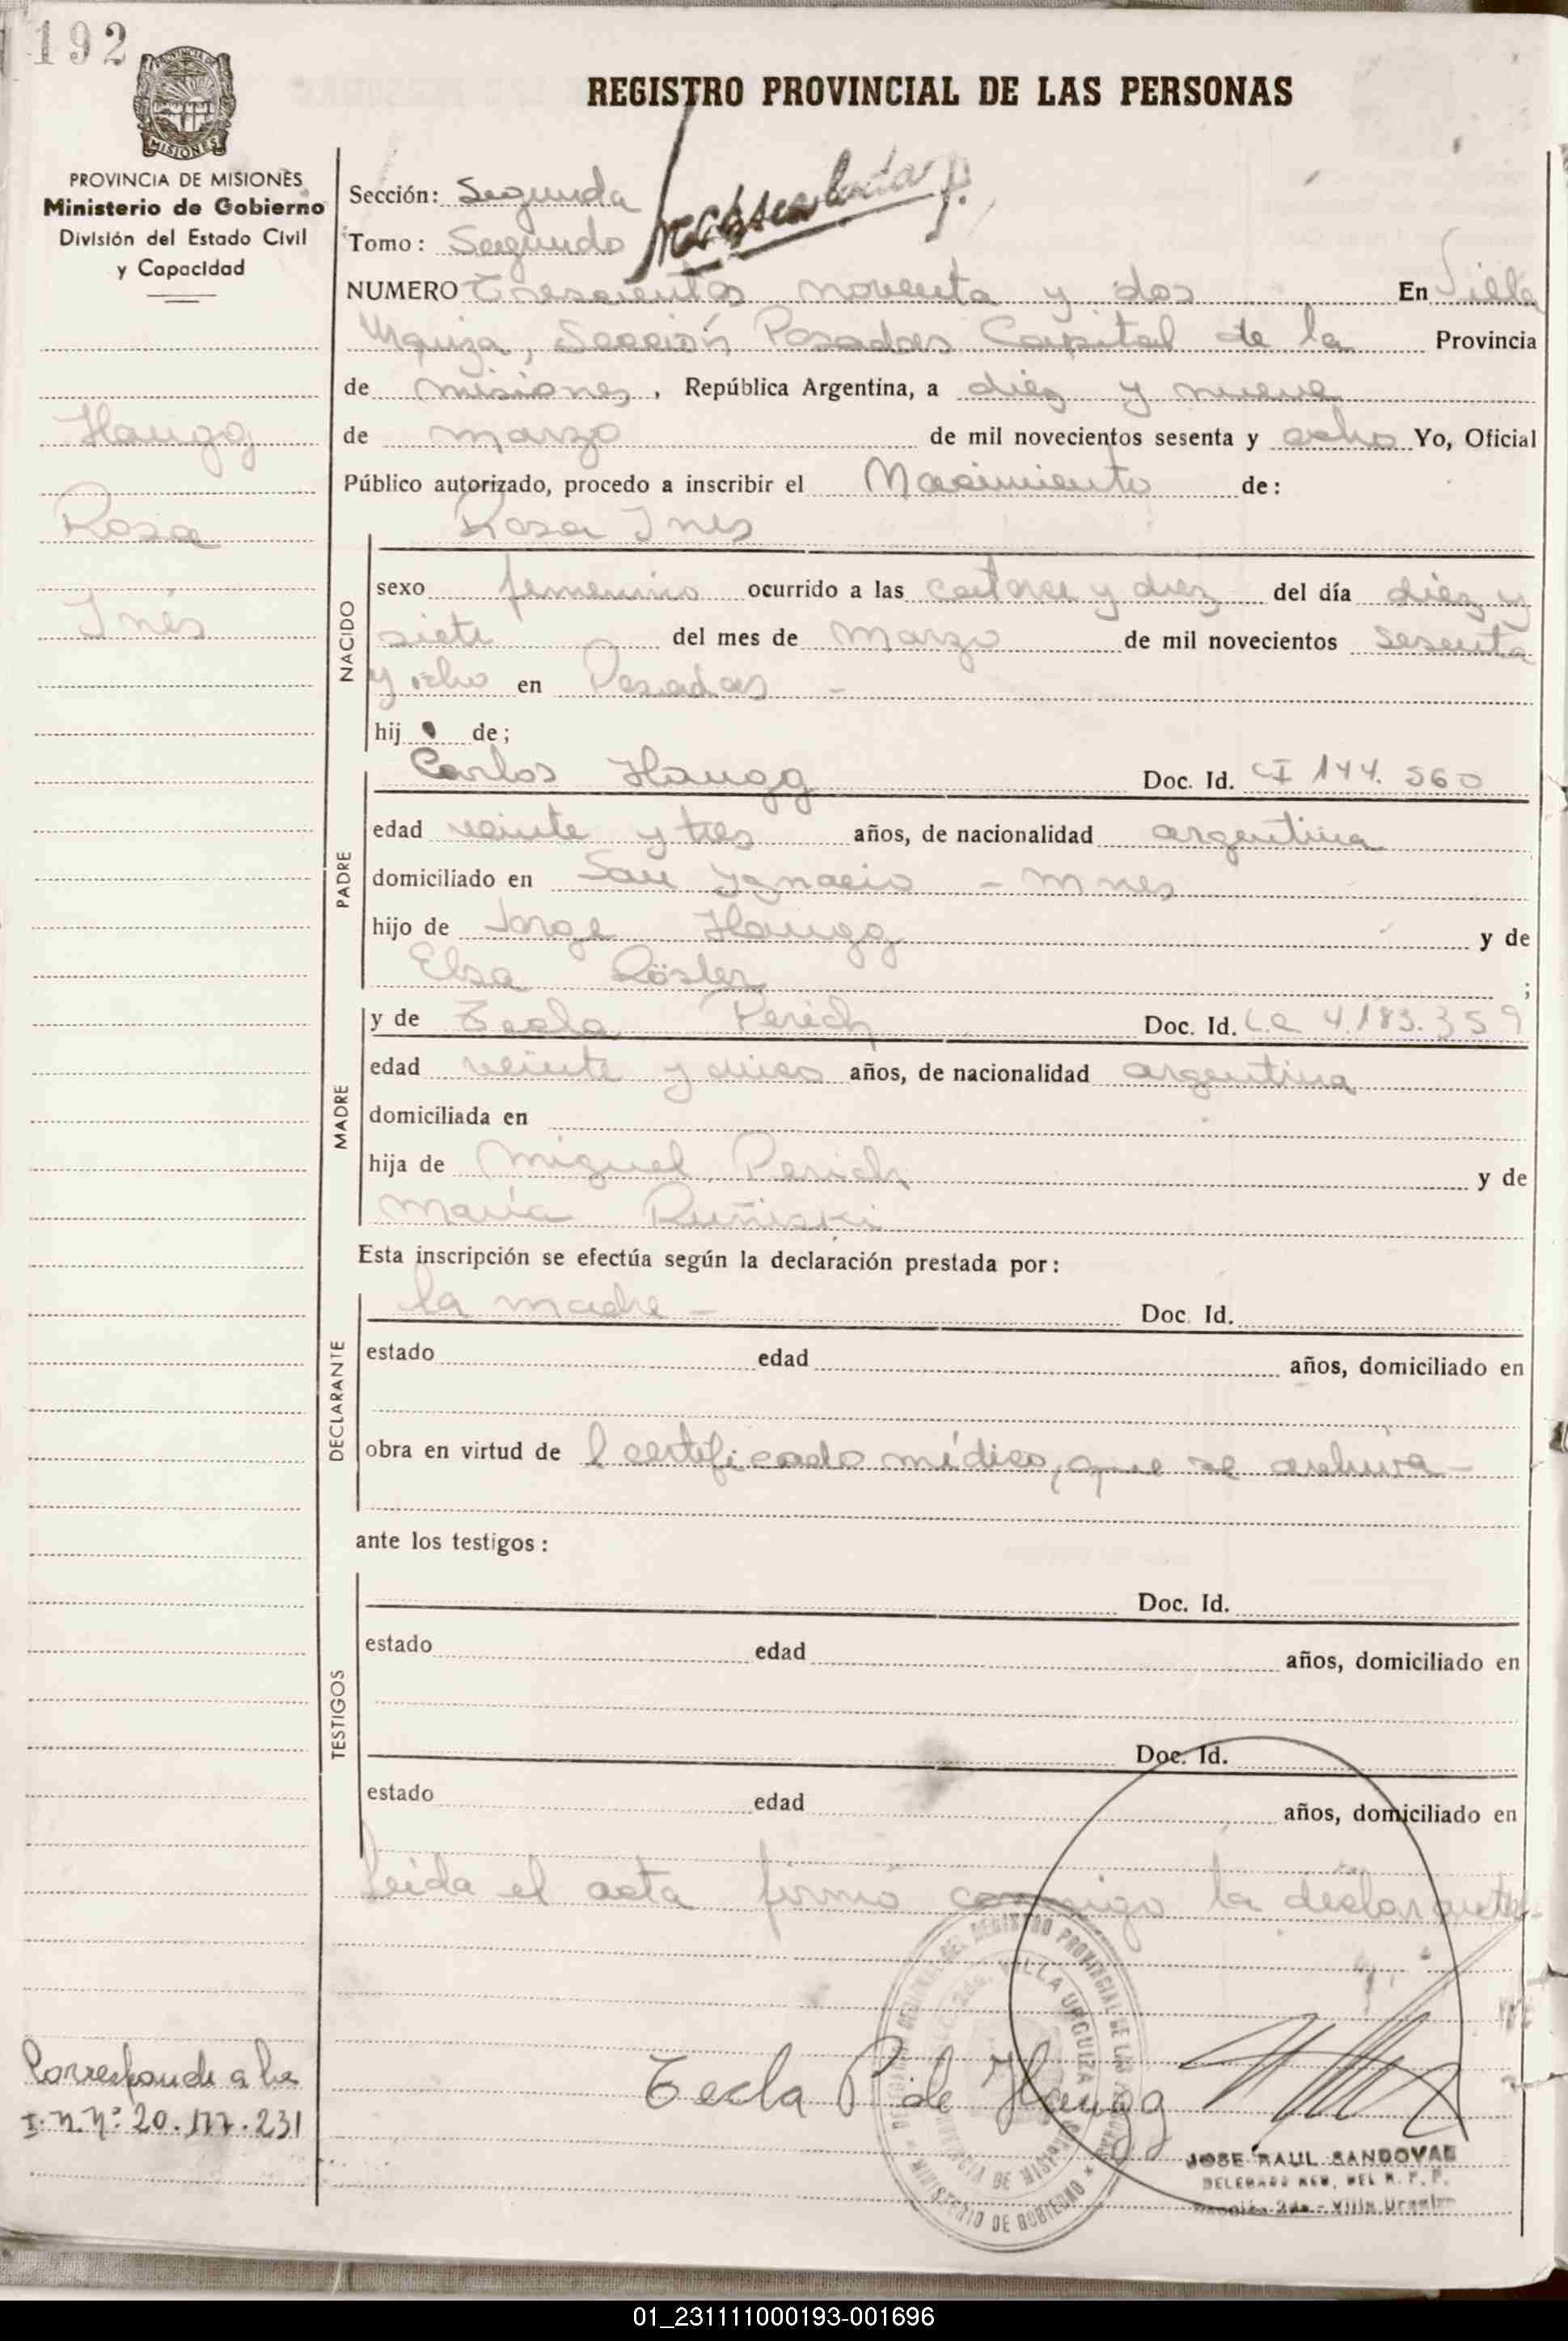 192
REGISTRO PROVINCIAL DE LAS PERSONAS
PROVINCIA DE MISIONES
MISIONES
Ministerio de Gobierno
División del Estado Civil
y Capacidad
Sección: Segunda
Tomo: Segundo
NUMERO Trescientos noventa y dos En Villa
Urquiza, Sección Posadas Capital de la Provincia
de misiones, República Argentina, a diez y nueve
Haugg
de marzo de mil novecientos sesenta y ocho Yo, Oficial
Público autorizado, procedo a inscribir el Nacimiento de:
Rosa
Rosa Ines
NACIDO
sexo femenino ocurrido a las catorce y diez del día diez y
Inés
siete del mes de marzo de mil novecientos sesenta
y ocho en Posadas -
hij de;
PADRE
Carlos Haugg Doc. Id. CI 144.560
edad veinte y tres años, de nacionalidad argentina
domiciliado en San Ygnacio - mnes
hijo de Jorge Haugg y de
Elsa Röster ;
MADRE
y de Tecla Perich Doc. Id. L.C 4.183.359
edad veinte y cinco años, de nacionalidad argentina
domiciliada en
hija de Miguel Perich y de
María
Esta inscripción se efectúa según la declaración prestada por:
DECLARANTE
la madre - Doc. Id.
estado edad años, domiciliado en
obra en virtud de l certificado médico, que se archiva -
ante los testigos:
TESTIGOS
Doc. Id.
estado edad años, domiciliado en
Doc. Id.
estado edad años, domiciliado en
Leida el acta firmó conmigo la declarante.-
Corresponde a la
I.N.Nº: 20.177.231
Tecla P. de Haugg
DEL REGISTRO PROVINCIAL DE LAS PERSONAS
VILLA URQUIZA
MINISTERIO DE GOBIERNO
JOSE RAUL SANDOVAL
Sección 2da - Villa Urquiza
01_231111000193-001696